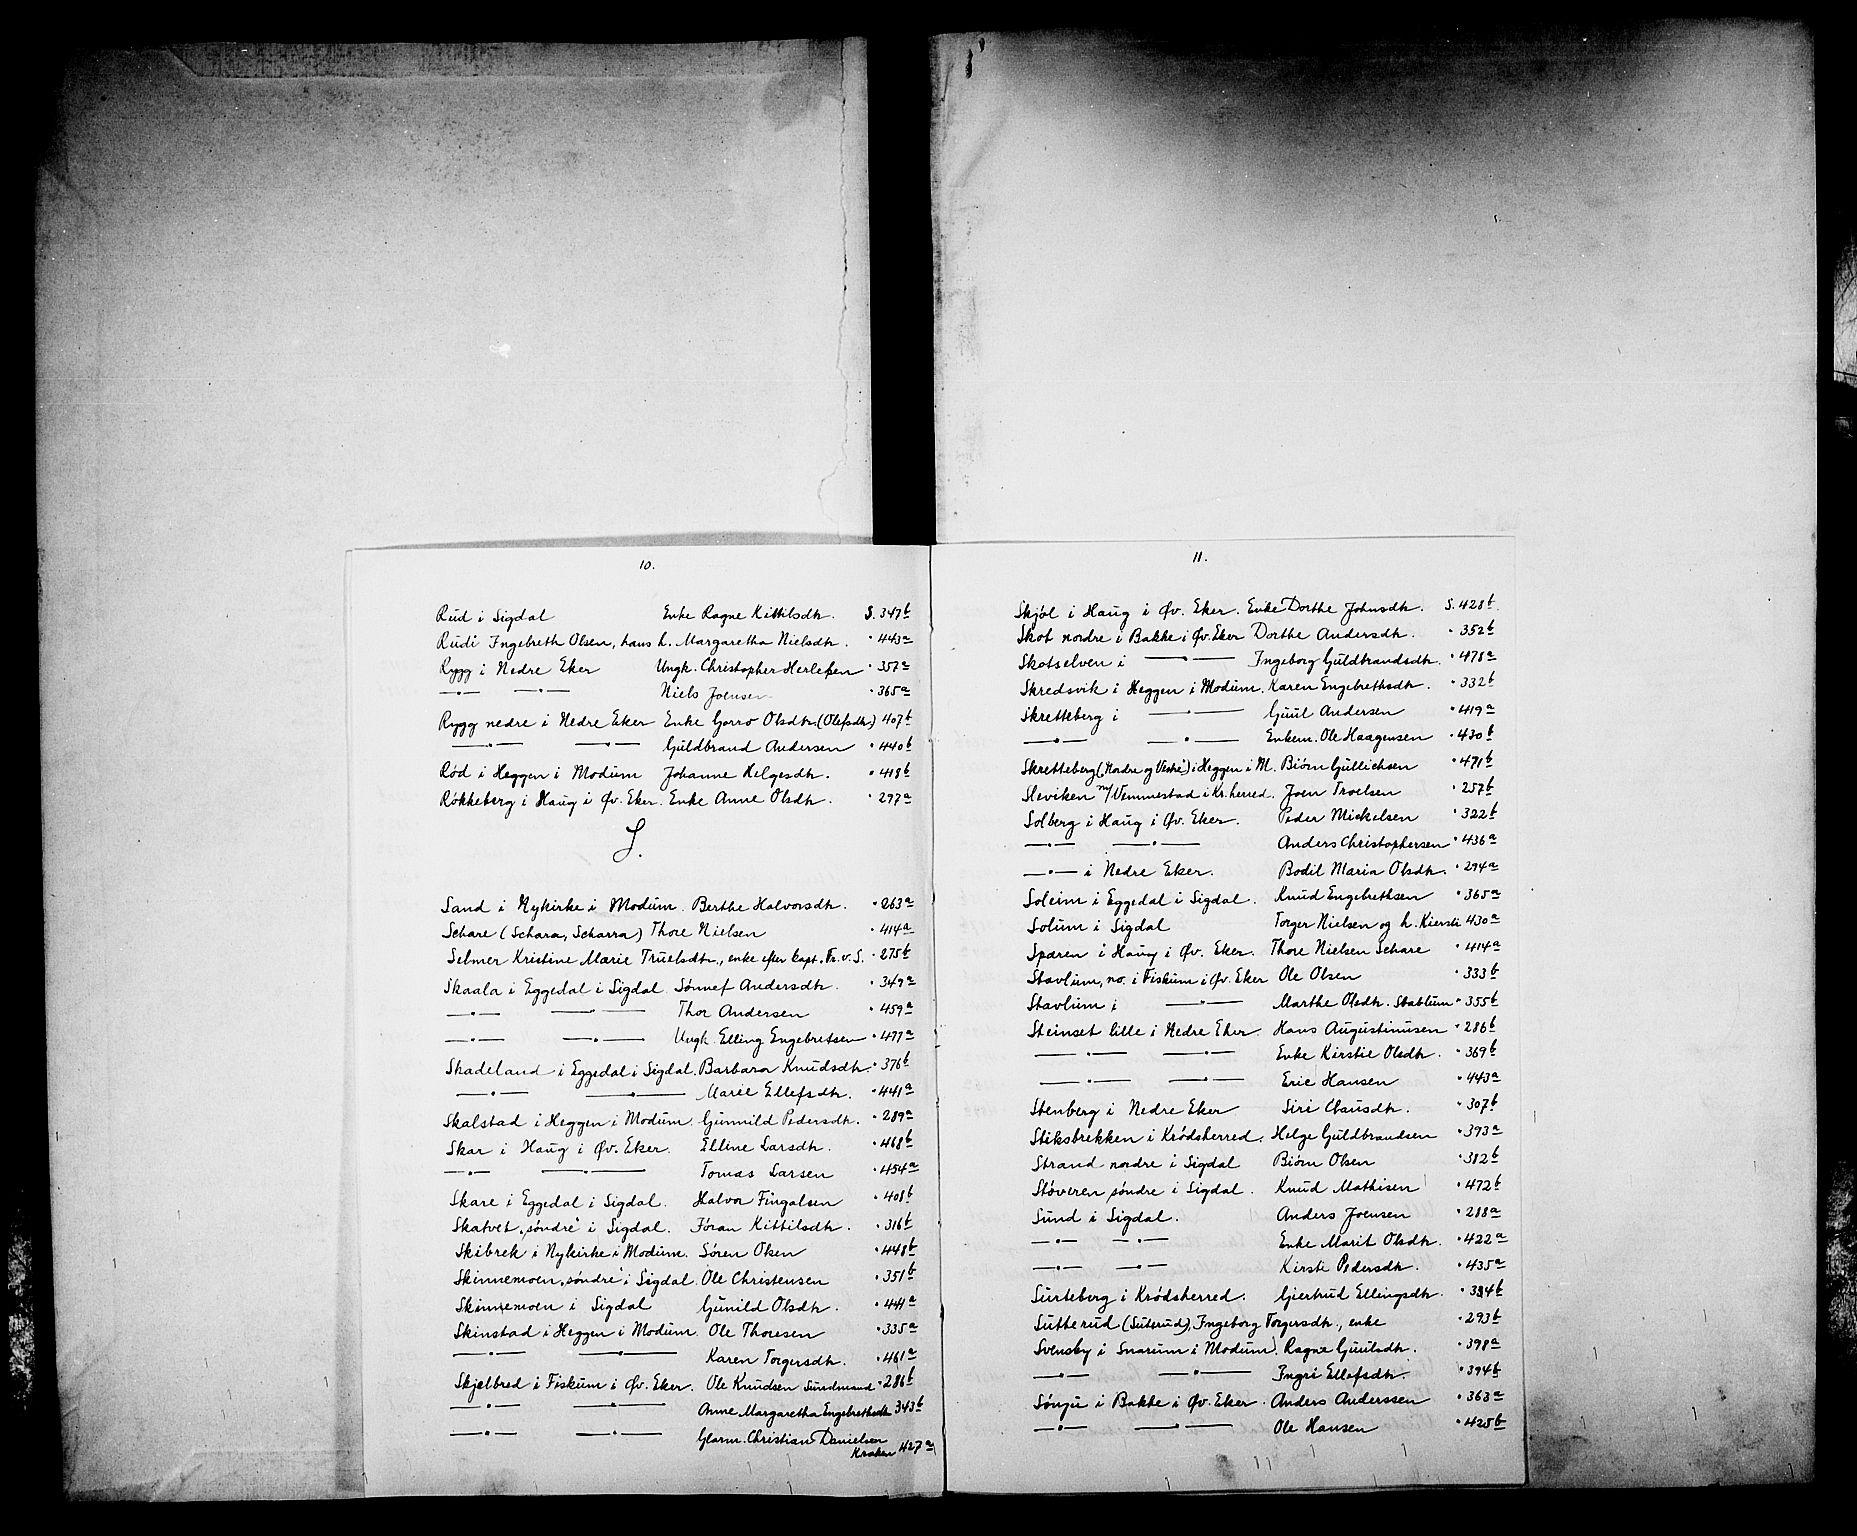 10.
Rud i Sigdal Enke Ragne Kittilsdtr. S. 347b
Rudi Ingebreth Olsen, hans h. Margaretha Nielsdtr. " 443a
Rygg i Nedre Eker Ungk. Christopher Herlefsen " 357a
—"— —"— Niels Joensen " 365a
Rygg nedre i Nedre Eker Enke Gorro Olsdtr. (Olefsdtr.) 407b
—"— —"— Guldbrand Andersen " 440b
Rød i Heggen i Modum Johanne Helgesdtr. " 418b
Røkkeberg i Haug i Øv. Eker. Enke Anne Olsdtr. " 297a
S.
Sand i Nykirke i Modum. Berthe Halvorsdtr. " 263a
Schare (Schara, Scharra) Thore Nielsen " 414a
Selmer Kristine Marie Truelsdtr., enke efter kapt. Fr. v. S. " 275b
Skaala i Eggedal i Sigdal Sønnef Andersdtr. " 349a
—"— —"— Thor Andersen " 459a
—"— —"— Ungk. Elling Engebretsen " 477a
Skadeland i Eggedal i Sigdal. Barbara Knudsdtr. " 376b
—"— —"— Marie Ellefsdtr. " 441a
Skalstad i Heggen i Modum. Gunnild Pedersdtr. " 289a
Skar i Haug i Øv. Eker. Elline Larsdtr. " 468b
—"— —"— Tomas Larsen " 454a
Skare i Eggedal i Sigdal. Halvor Fingalsen " 408b
Skatvet "søndre" i Sigdal. Jöran Kittilsdtr. " 316b
Skibrek i Nykirke i Modum. Søren Olsen " 448b
Skinnemoen "søndre" i Sigdal. Ole Christensen " 351b
Skinnemoen i Sigdal Gunild Olsdtr. " 441a
Skinstad i Heggen i Modum. Ole Thoresen " 335a
—"— —"— Karen Torgersdtr. " 461a
Skjelbred i Fiskum i Øv. Eker. Ole Knudsen Sundmand " 286b
—"— —"— Anne Margaretha Engebrethsdtr 343b
—"— —"— Glarm. Christian Danielsen
Kraken 427a
11.
Skjøl i Haug i Øv. Eker. Enke Dorthe Johnsdtr. S. 428b
Skot nordre i Bakke i Øv. Eker Dorthe Andersdtr. " 352b
Skotselven i —"— Ingeborg Guldbrandsdtr. " 478a
Skredsvik i Heggen i Modum. Karen Engebrethsdtr. " 332b
Skretteberg i —"— Guul Andersen " 419a
—"— —"— Enkem. Ole Haagensen " 430b
Skretteberg ("Nordre og Vestre") i Heggen i M. Biørn Gullichsen " 471b
Sleviken m/Vemmestad i Kr. herred. Joen Troelsen " 257b
Solberg i Haug i Øv. Eker. Peder Mickelsen " 322b
—"— —"— Anders Christophersen " 436a
—"— i Nedre Eker. Bodil Maria Olsdtr. " 294a
Soleim i Eggedal i Sigdal. Knud Engebrethsen " 365a
Solum i Sigdal Torger Nielsen og h. Kiersti 430a
Sparen i Haug i Øv. Eker. Thore Nielsen Schare " 414a
Stavlum, no. i Fiskum i Øv. Eker Ole Olsen " 333b
Stavlum i —"— Marthe Olsdtr. Stablum " 355b
Steinset lille i Nedre Eker. Hans Augustinusen " 286b
—"— —"— Enke Kirstie Olsdtr. " 369b
—"— —"— Eric Hansen " 443a
Stenberg i Nedre Eker Siri Clausdtr. " 307b
Stiksbrekken i Krødsherred. Helge Guldbrandsen " 393a
Strand nordre i Sigdal Biørn Olsen " 382b
Støveren søndre i Sigdal. Knud Mathisen " 472b
Sund i Sigdal. Anders Joensen " 288a
—"— —"— Enke Marit Olsdtr. " 422a
—"— —"— Kirsti Pedersdtr. " 435a
Surteberg i Krødsherred. Giertrud Ellingsdtr. " 384b
Sutterud (Suterud), Ingeborg Torgersdtr., enke " 293b
Svensby i Snarum i Modum. Ragne Guulsdtr. " 398a
—"— —"— Ingri Ellefsdtr. " 394b
Sønju i Bakke i Øv. Eker. Anders Anderssen " 363a
—"— —"— Ole Hansen " 425b